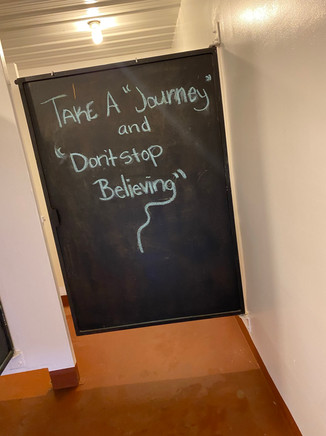 TAKE A "Journey"
and
"Don't stop
Believing"